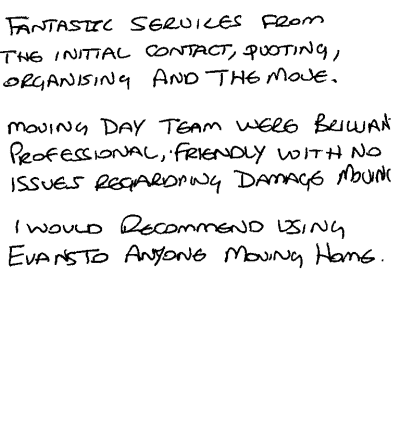 FANTASTIC SERVICES FROM
THE INITIAL CONTACT, QUOTING,
ORGANISING AND THE MOVE.
MOVING DAY TEAM WERE BRILLIAN
PROFESSIONAL, FRIENDLY WITH NO
ISSUES REGARDING DAMAGE MOVING
I WOULD RECOMMEND USING
EVANS TO ANYONE MOVING HOME.